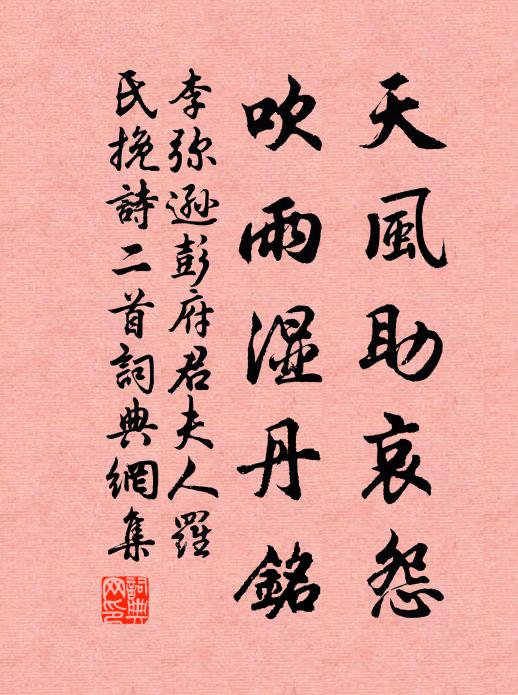 天風助哀怨
吹雨濕丹銘
李弥遜彭府君夫人羅
氏挽詩二首詞典網集
詞典网印